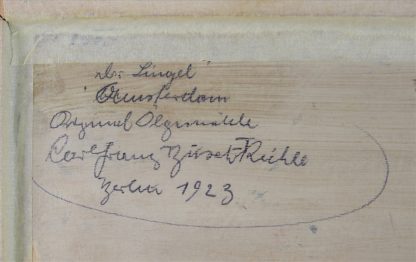 "De Singel"
Amsterdam
Original Ölgemälde
Carl Franz Busch-Kühle
Berlin 1923